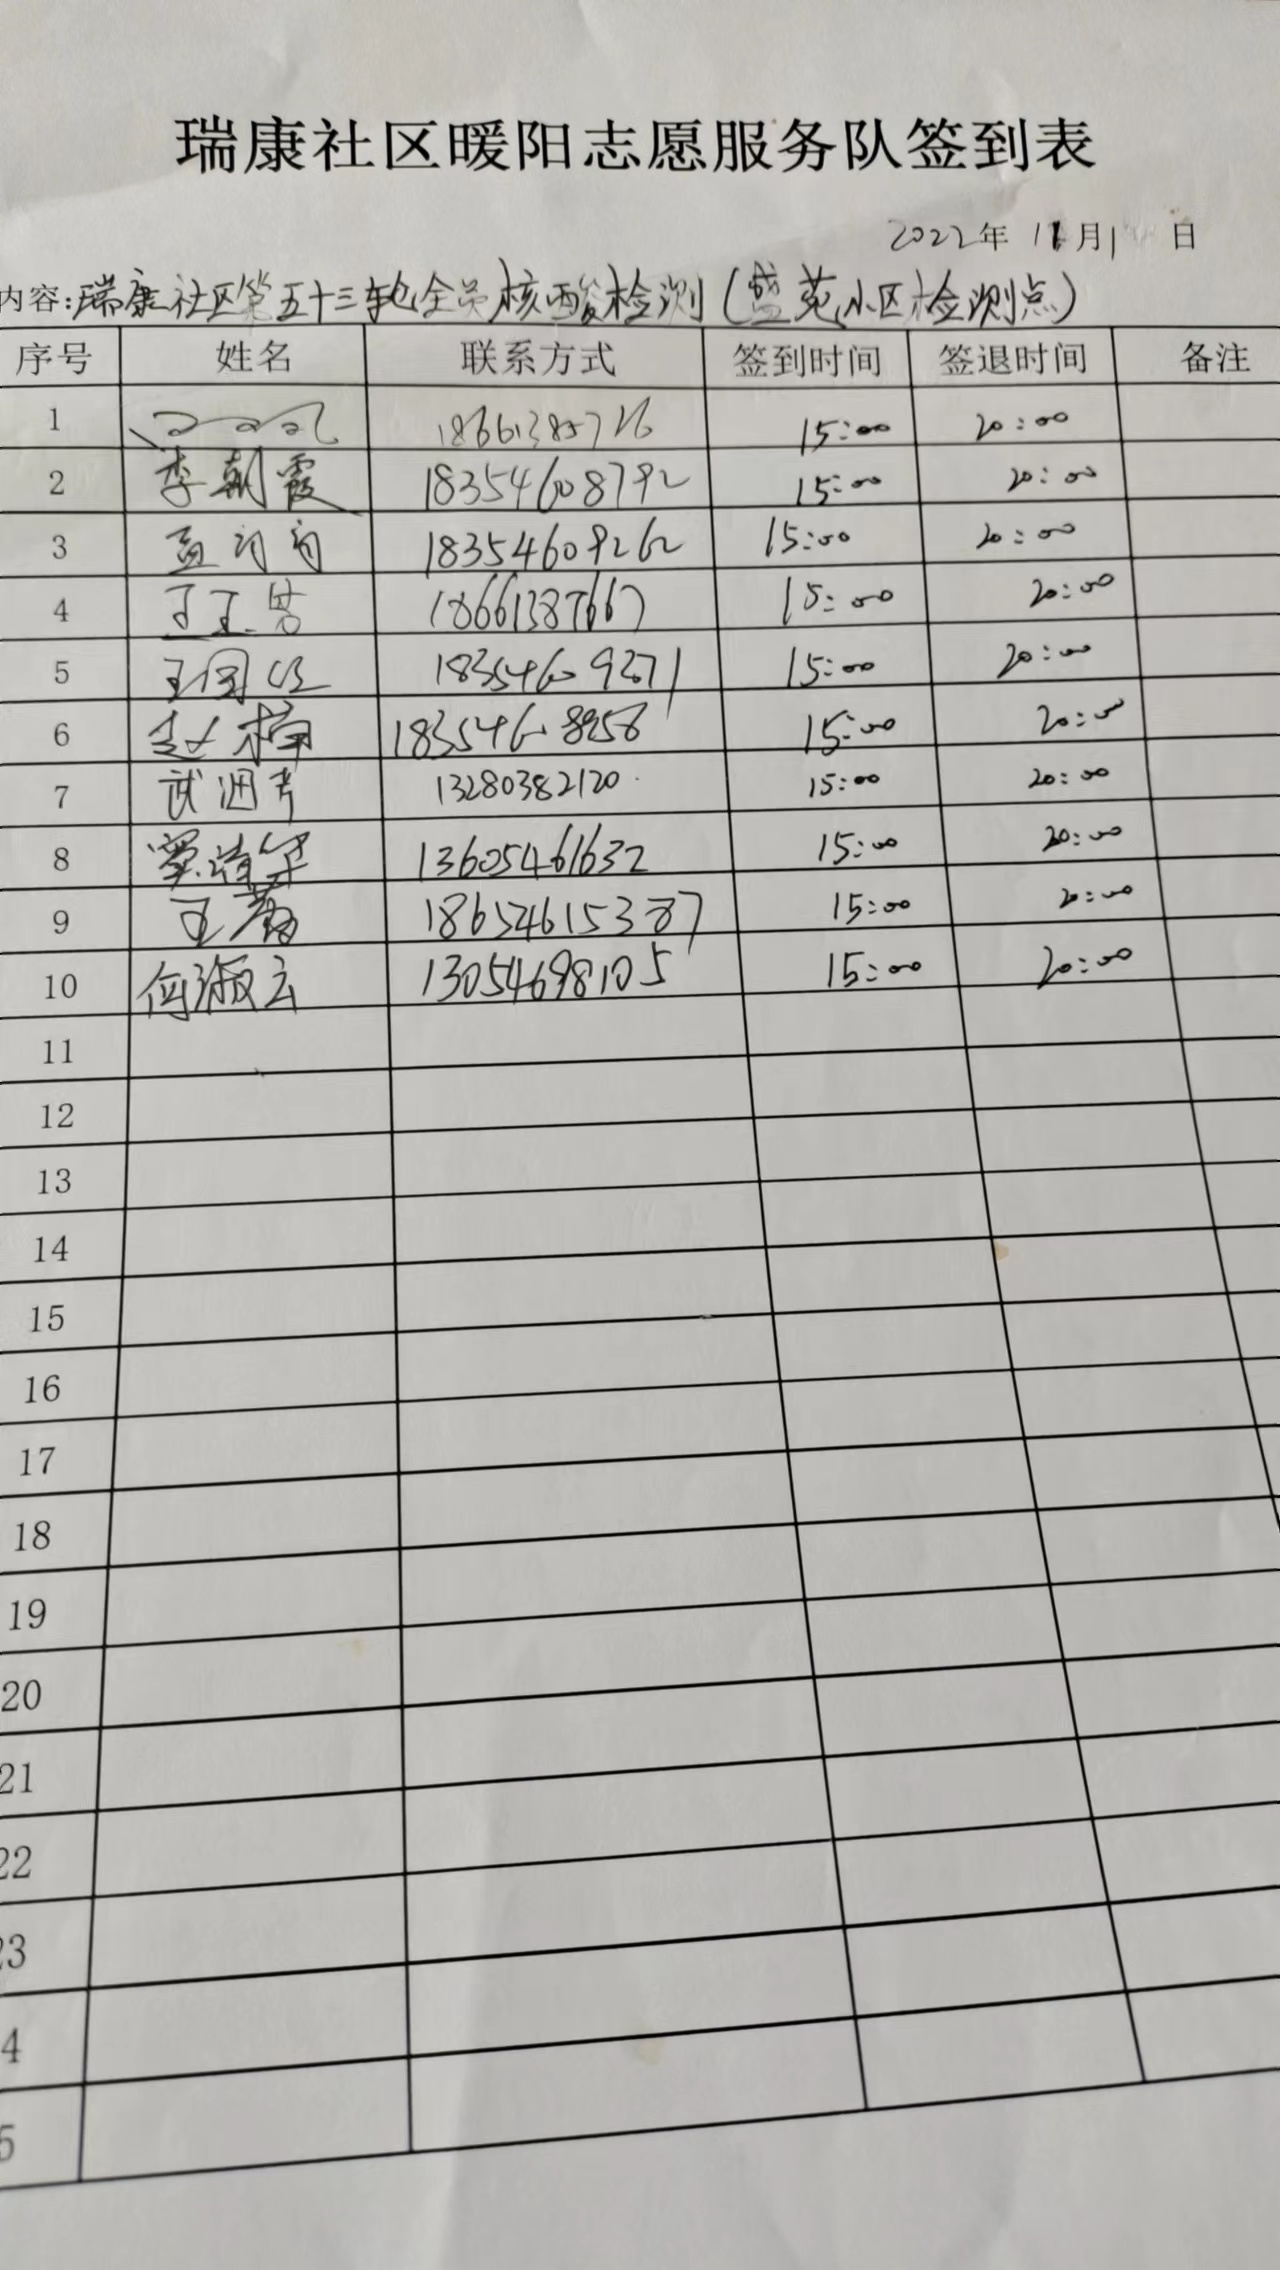 瑞康社区暖阳志愿服务队签到表
2022年 11月1 日
内容:瑞康社区第五十三轮全员核酸检测(盛苑小区检测点)
序号 姓名 联系方式 签到时间 签退时间 备注
1 15:00 20:00
2 李朝霞 18354608792 15:00 20:00
3 孟 18354609262 15:00 20:00
4 王玉 18661387667 15:00 20:00
5 王国 18354609371 15:00 20:00
6 赵楠 18354608958 15:00 20:00
7 武 13280382120 15:00 20:00
8 窦 13605461632 15:00 20:00
9 王 18654615387 15:00 20:00
10 何淑云 13054698105 15:00 20:00
11
12
13
14
15
16
17
18
19
20
21
22
23
4
5